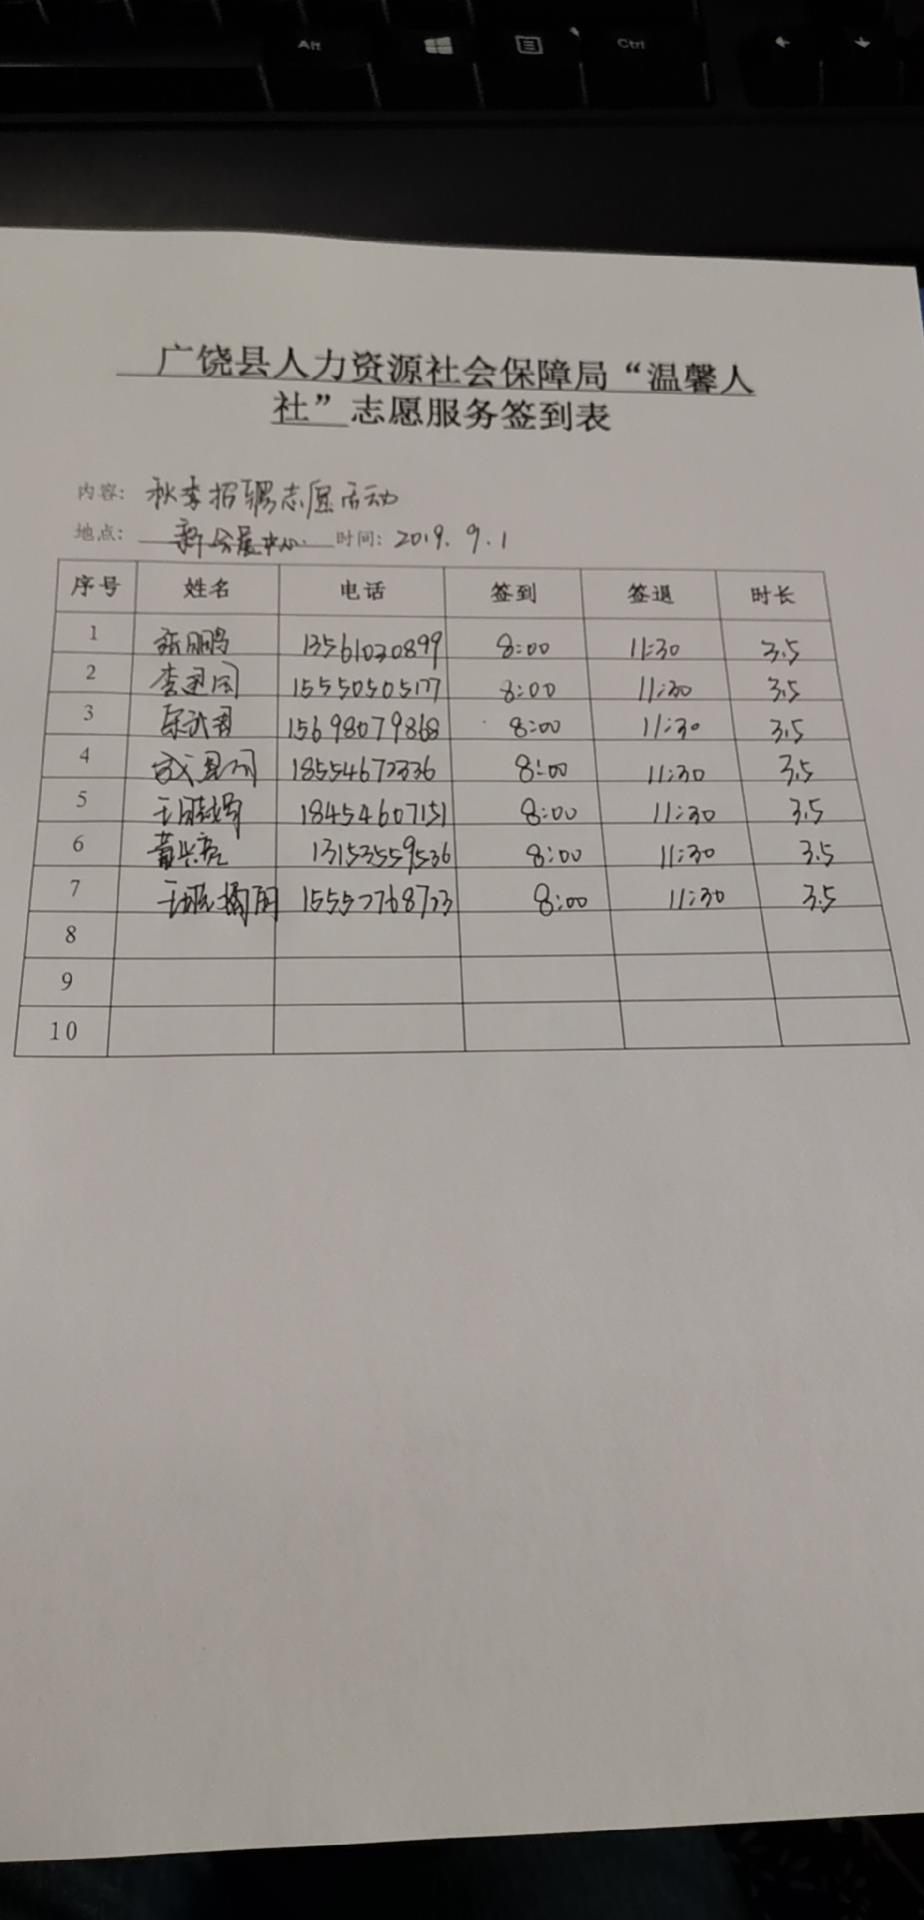 Alt
Ctrl
广饶县人力资源社会保障局“温馨人
社”志愿服务签到表
内容: 秋季招聘志愿活动
地点: 新会展中心 时间: 2019.9.1
序号 姓名 电话 签到 签退 时长
1 张鹏 13561030899 8:00 11:30 3.5
2 15550505177 8:00 11:30 3.5
3 15698079868 8:00 11:30 3.5
4 18554672336 8:00 11:30 3.5
5 18454607151 8:00 11:30 3.5
6 黄兴亮 13153559536 8:00 11:30 3.5
7 8:00 11:30 3.5
8
9
10